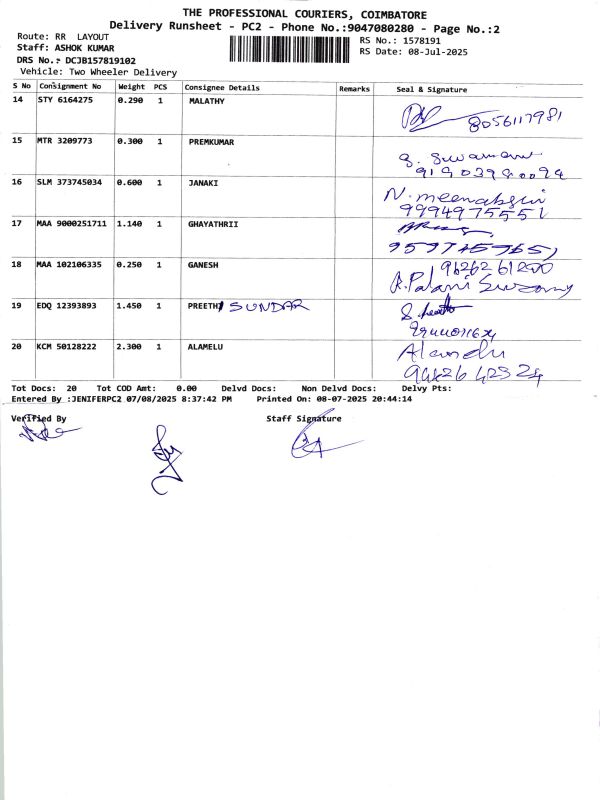 THE PROFESSIONAL COURIERS, COIMBATORE
Delivery Runsheet - PC2 - Phone No.:9047080280 - Page No.:2
Route: RR LAYOUT
RS No.: 1578191
Staff: ASHOK KUMAR
RS Date: 08-Jul-2025
DRS No.: DCJB157819102
Vehicle: Two Wheeler Delivery
S No Consignment No Weight PCS Consignee Details Remarks Seal & Signature
14 STY 6164275 0.290 1 MALATHY
8056117981
15 MTR 3209773 0.300 1 PREMKUMAR
16 SLM 373745034 0.600 1 JANAKI
N. meenakshi
9994975551
17 MAA 9000251711 1.140 1 GHAYATHRII
18 MAA 102106335 0.250 1 GANESH
9626261200
19 EDQ 12393893 1.450 1 PREETHI SUNDAR
20 KCM 50128222 2.300 1 ALAMELU
Tot Docs: 20 Tot COD Amt: 0.00 Delvd Docs: Non Delvd Docs: Delvy Pts:
Entered By :JENIFERPC2 07/08/2025 8:37:42 PM Printed On: 08-07-2025 20:44:14
Verified By Staff Signature